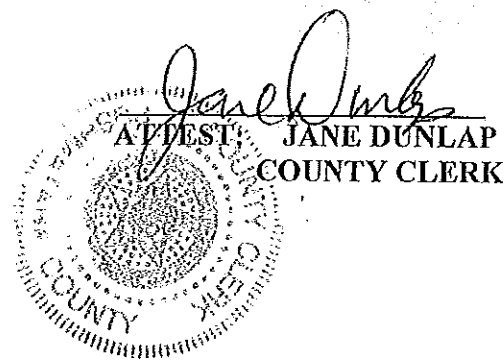 Jane Dunlap
ATTEST: JANE DUNLAP
COUNTY CLERK
COUNTY CLERK
COUNTY